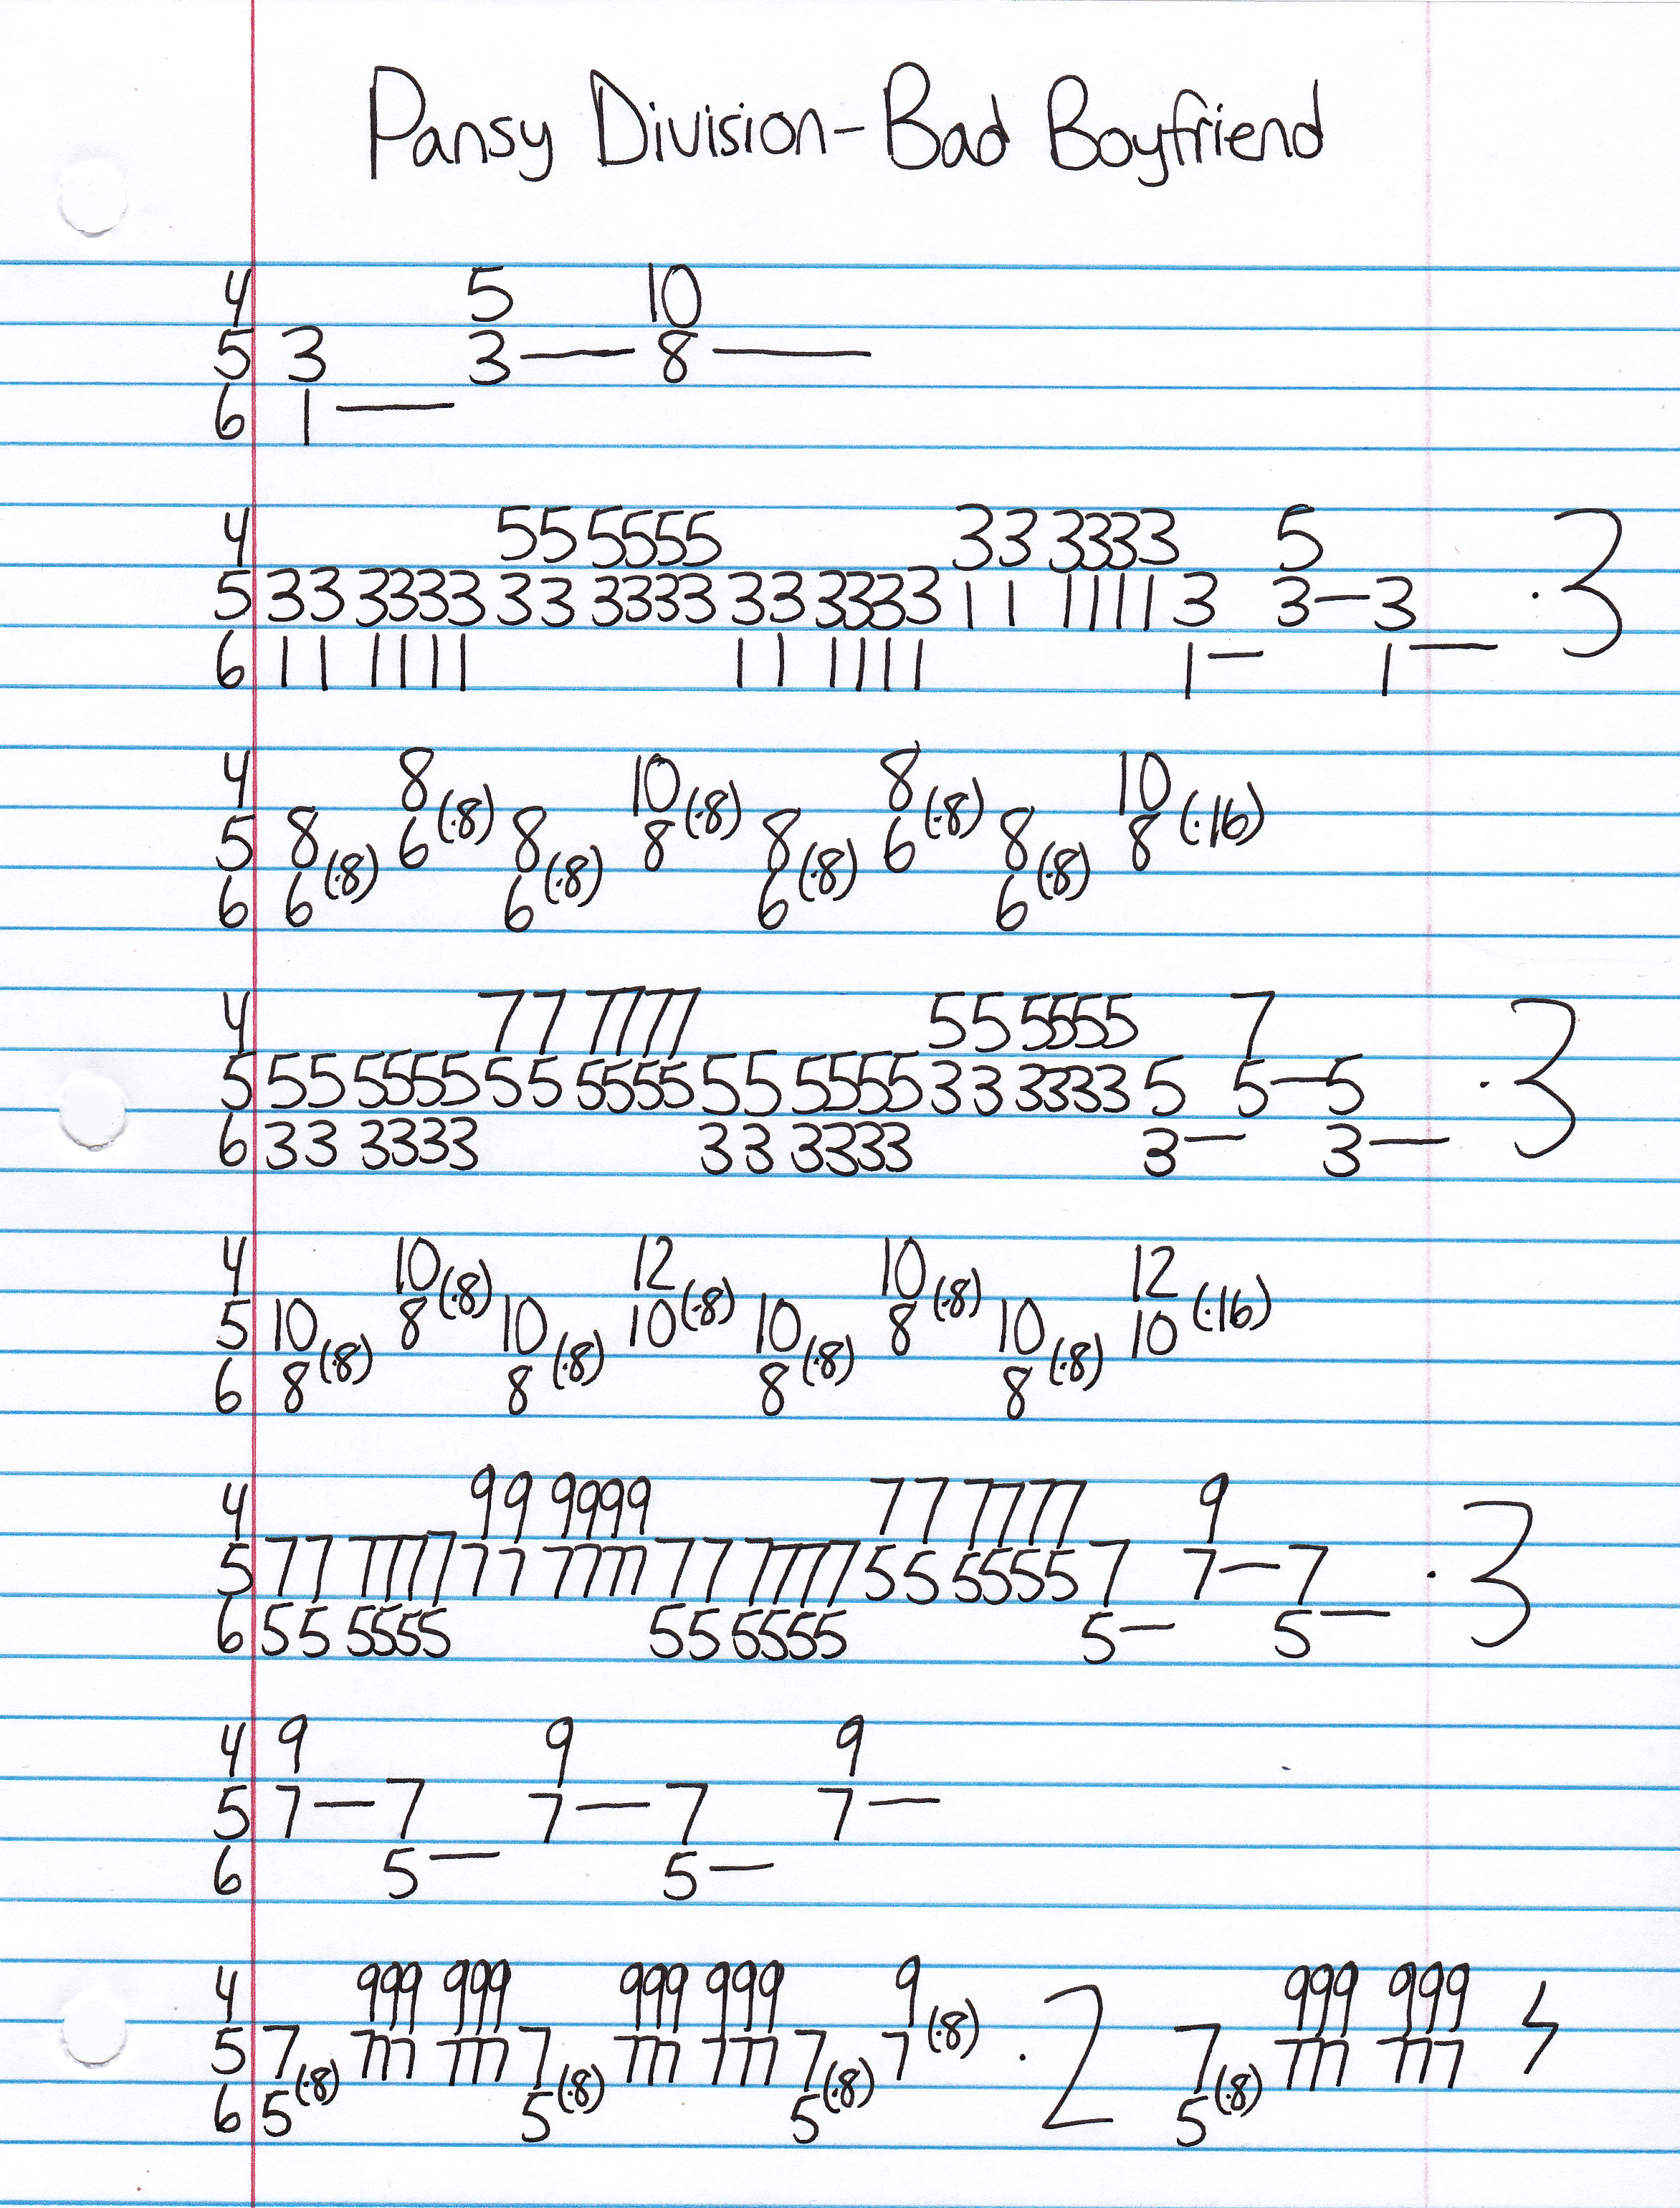 Pansy Division-Bad Boyfriend
4 5 10
5 3 3— 8—
6 1—
4 55 5555 33 3333 5
5 33 3333 33 3333 33 3333 11 1111 3 3—3 ·3
6 11 1111 11 1111 1— 1—
4 8(·8) 10(·8) 8(·8) 10(·16)
5 8(·8) 6 8(·8) 8 8(·8) 6 8(·8) 8
6 6 6 6 6
4 77 7777 55 5555 7
5 55 5555 55 5555 55 5555 33 3333 5 5—5 ·3
6 33 3333 33 3333 3— 3—
4 10(·8) 12(·8) 10(·8) 12(·16)
5 10(·8) 8 10(·8) 10 10(·8) 8 10(·8) 10
6 8 8 8 8
4 99 9999 77 7777 9
5 77 7777 77 7777 77 7777 55 5555 7 7—7 ·3
6 55 5555 55 5555 5— 5—
4 9 9 9
5 7—7 7—7 7—
6 5— 5—
4 999 999 999 999 9(·8) 999 999
5 7(·8) 777 777 7(·8) 777 777 7(·8) 7 ·2 7(·8) 777 777
6 5 5 5 5